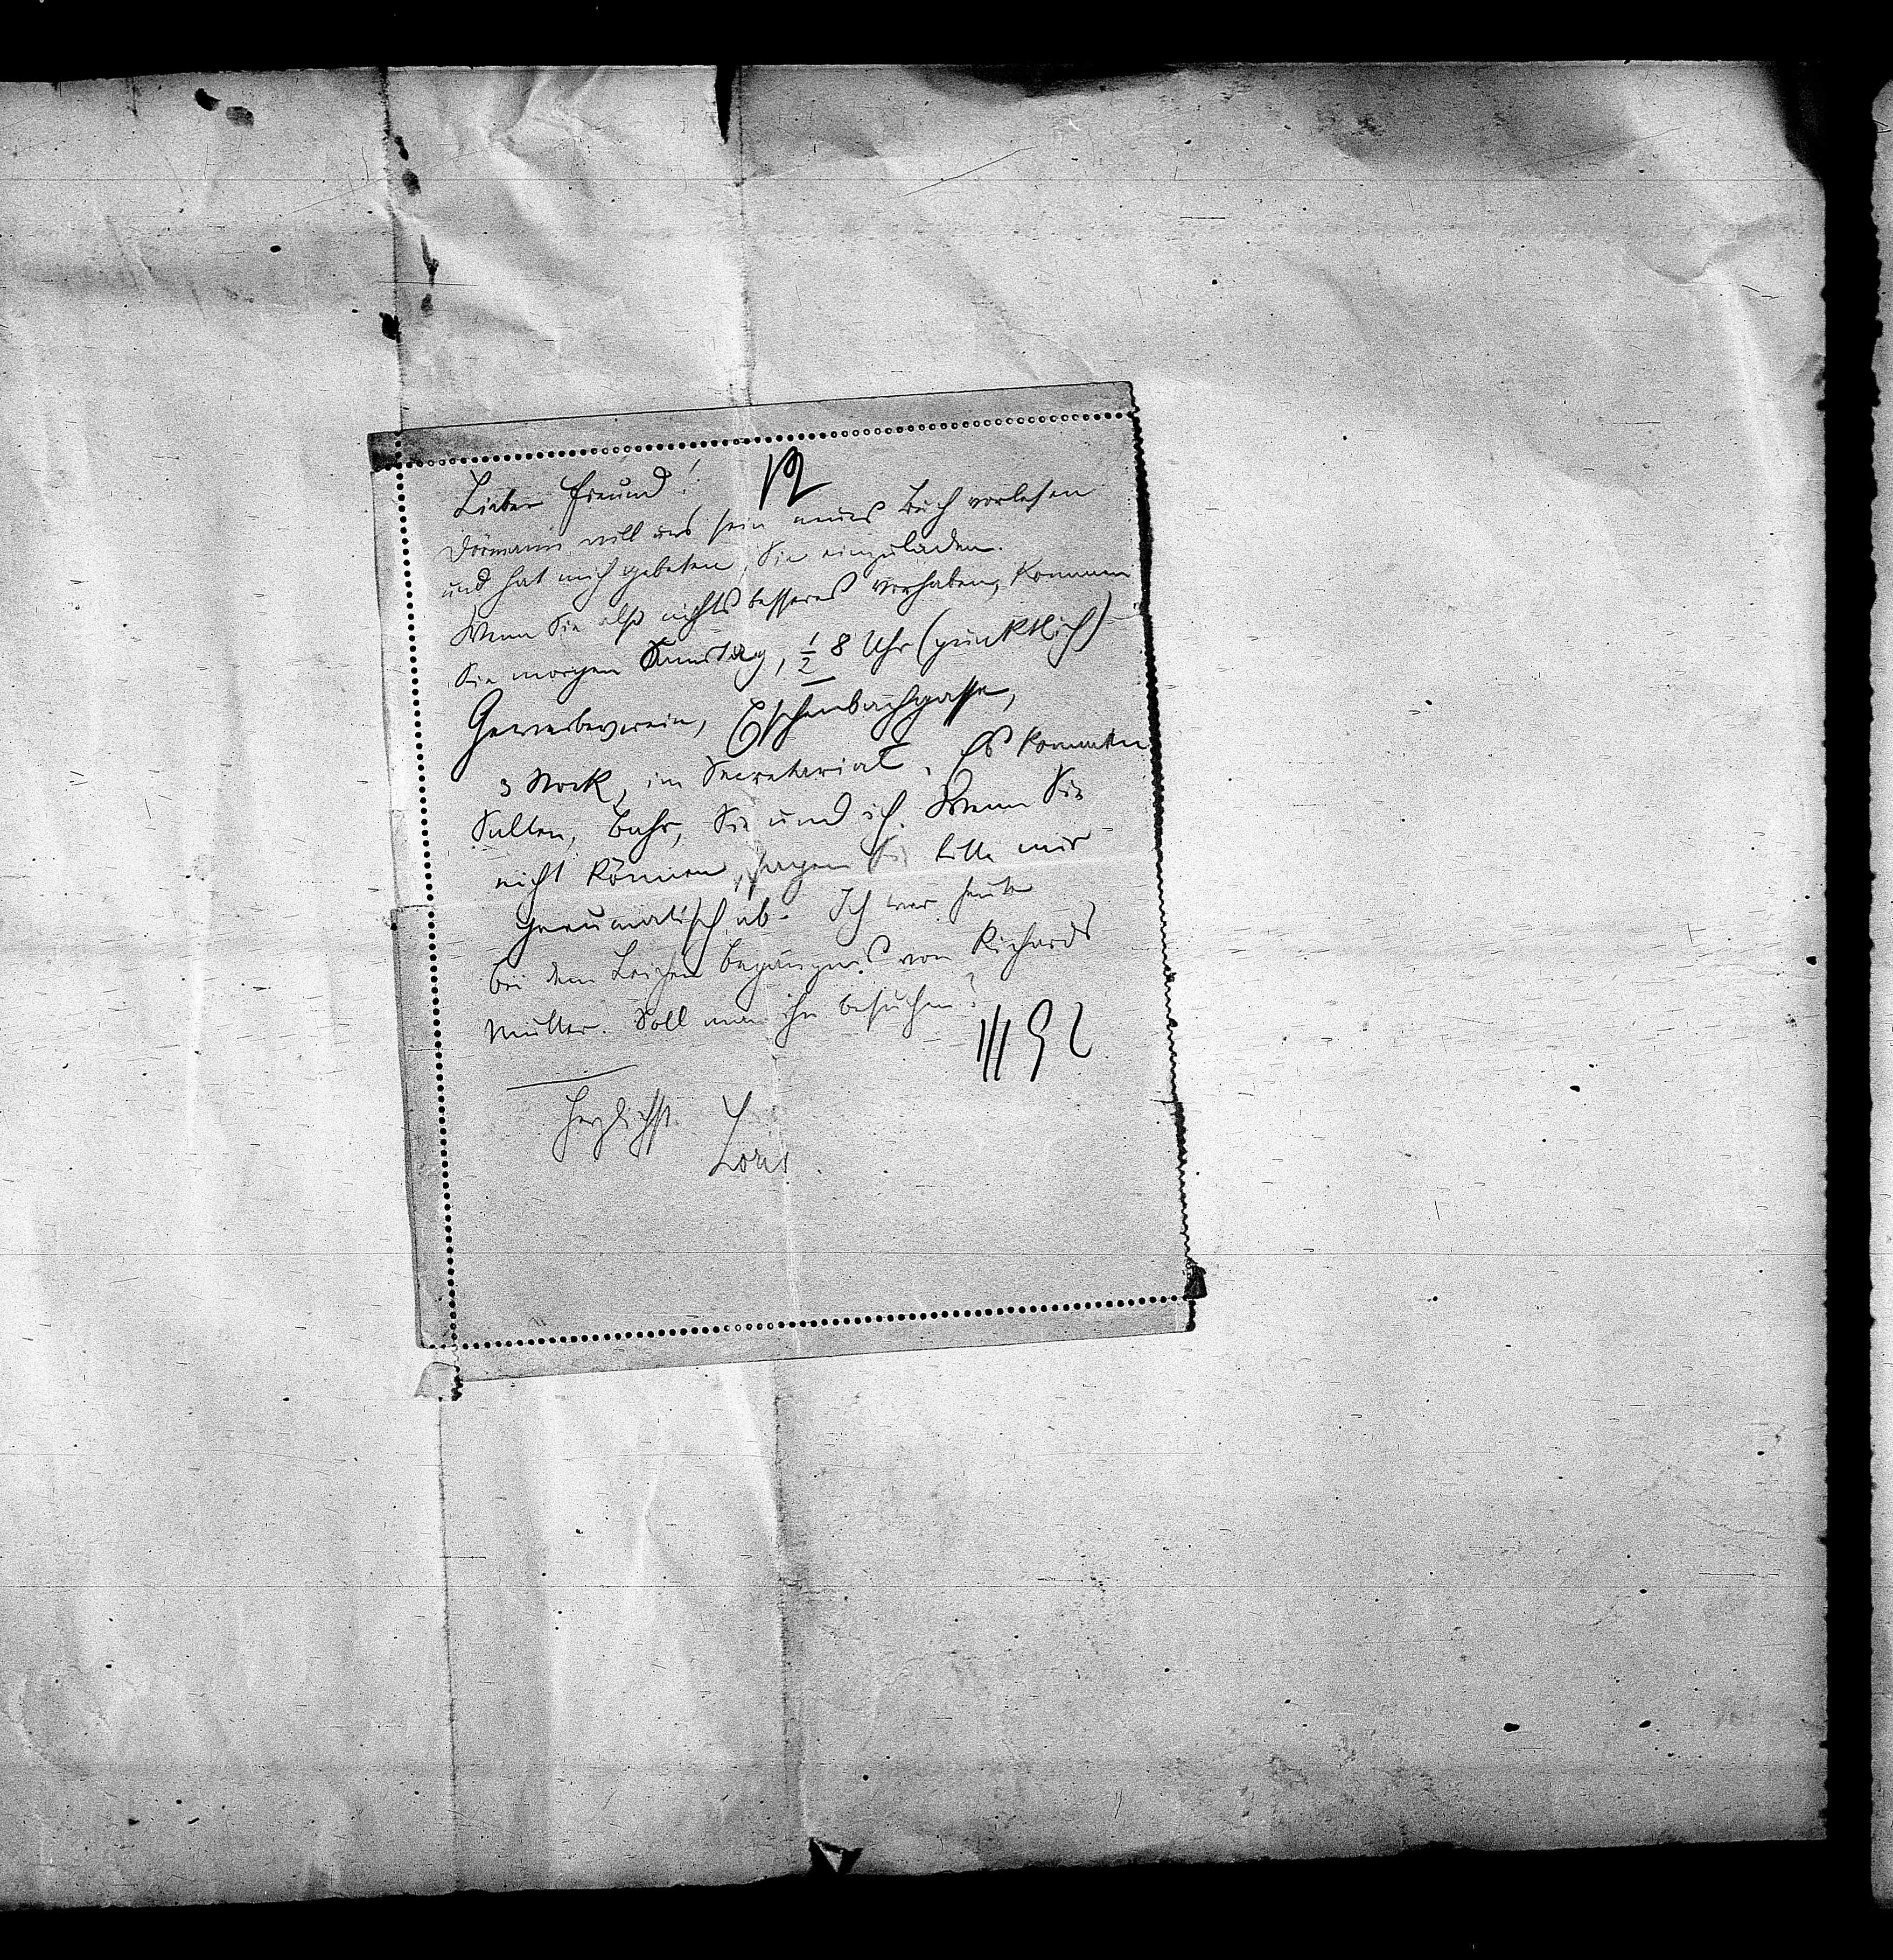 Lieber Freund! 12
Dörmann will uns sein neues Buch vorlesen
und hat mich gebeten, Sie einzuladen.
Wenn Sie also nichts besseres vorhaben, kommen
Sie morgen Samstag, ½ 8 Uhr (pünktlich)
Gewerbeverein, Eschenbachgasse,
3 Stock, im Secretariat. Es kommen
Salten, Bahr, Sie und ich. Wenn Sie
nicht können, sagen Sie bitte mir
pneumatisch ab. Ich war heute
bei dem Leichenbegängnis von Richards
Mutter. Soll man ihn besuchen?
III 92
Herzlichst
Loris.